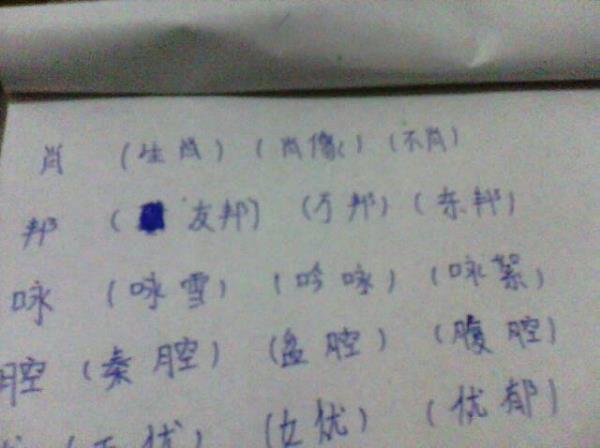 肖 (生肖) (肖像) (不肖)
邦 (友邦) (万邦) (东邦)
咏 (咏雪) (吟咏) (咏絮)
腔 (秦腔) (盆腔) (腹腔)
(忧郁)